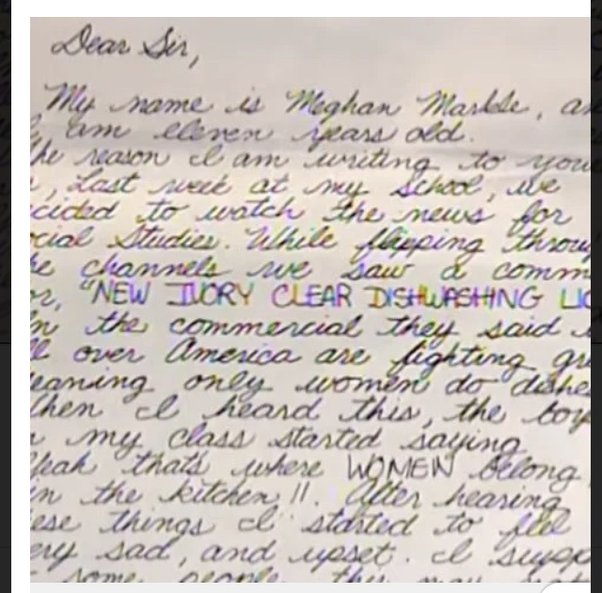 Dear Sir,
My name is Meghan Markle, an
I am eleven years old.
he reason I am writing to you
, Last week at my school, we
cided to watch the news for
cial Studies. While flipping throu
e channels we saw a comm
or, "NEW IVORY CLEAR DISHWASHING LI
n the commercial they said
ll over America are fighting gr
eaning only women do dishe
hen I heard this, the boy
n my class started saying
Yeah thats where WOMEN belong
in the kitchen!!. After hearing
ese things I started to feel
ery sad, and upset. I supp
some people this may